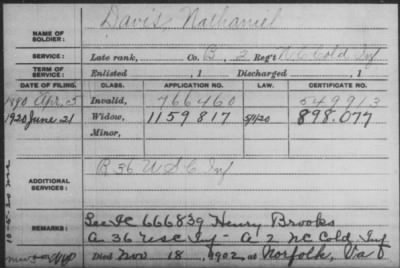 NAME OF SOLDIER: Davis, Nathaniel
SERVICE: Late rank, Co. B, 2 Reg't N.C. Cold Inf
TERM OF SERVICE: Enlisted , 1 Discharged , 1
DATE OF FILING. CLASS. APPLICATION NO. LAW. CERTIFICATE NO.
1890 Apr. 5 Invalid, 766460 549913
1920 June 21 Widow, 1159817 5/1/20 898.077
Minor,
ADDITIONAL SERVICES: B 36 U S C Inf
REMARKS: See Ic 666839 Henry Brooks
A 36 USC Inf - A 2 NC Cold Inf
Died Nov 18, 1902 at Norfolk, Va